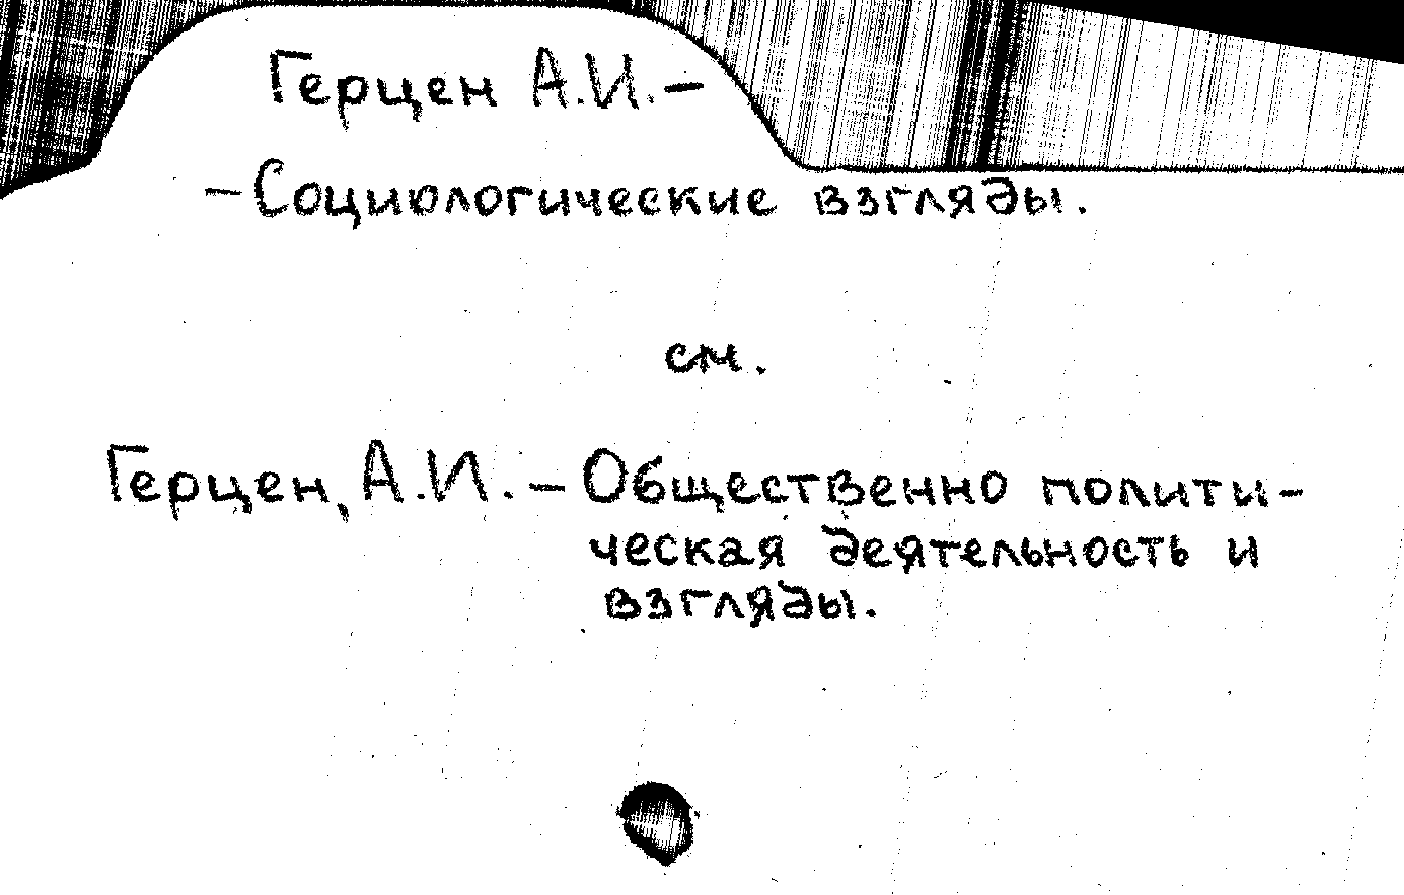 Герцен А.И.—
—Социологические взгляды.
см.
Герцен, А.И. — Общественно полити-
ческая деятельность и
взгляды.